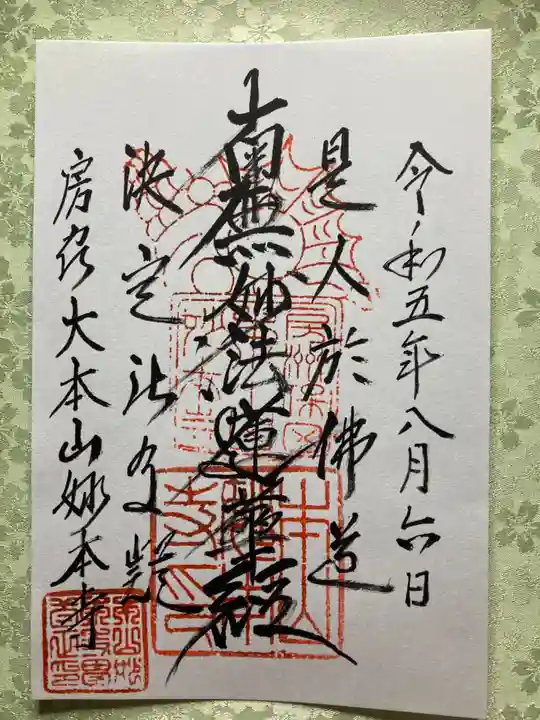 令和五年八月六日
是人於佛道
南無妙法蓮華経
決定无有疑
房州大本山妙本寺